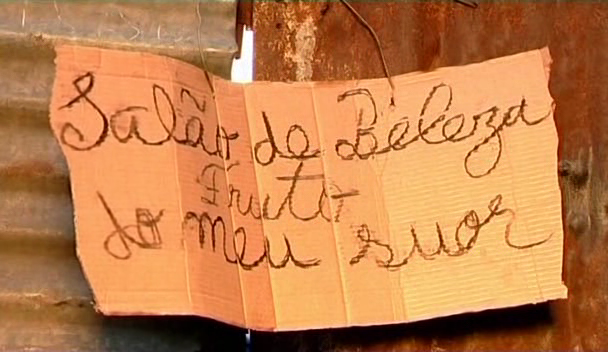 Salão de Beleza
Fruto
do meu suor